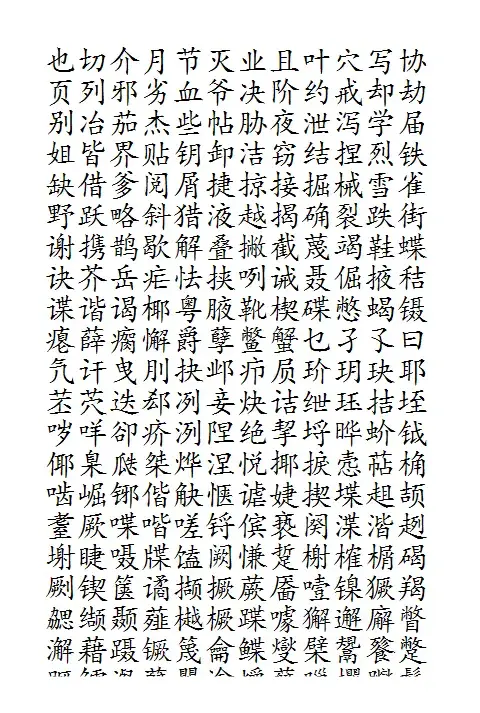 也切介月节灭业且叶穴写协
页列邪劣血爷决阶约戒却劫
别冶茄杰些帖胁夜泄泻学届
姐皆界贴钥卸洁窃结捏烈铁
缺借爹阅屑捷掠接掘械雪雀
野跃略斜猎液越揭确裂跌街
谢携鹊歇解叠撇截蔑竭鞋蝶
诀芥岳疟怯挟咧诫聂倔掖秸
谍谐谒椰粤腋靴楔碟憋蝎镊
瘪薛瘸懈爵孽鳖蟹乜孑孓曰
氕讦曳刖抉邺疖屃玠玥玦耶
苤茓迭郄冽妾炔诘绁珏拮垤
哕咩卻疥洌陧绝挈埒晔蚧钺
倻臬瓞桀烨涅悦揶捩悫萜桷
啮崛铘偕觖惬谑婕揳堞趄颉
耋厥喋喈嗟锊傧亵阕渫湝趔
塮睫嗫牒馌阙慊踅榭榷楣碣
劂锲箧谲撷撅蕨靥噎镍獗羯
勰缬颞薤樾橛蹀噱獬邂廨瞥
澥藉蹑镢篾龠鲽燮檗鷩餮蹩